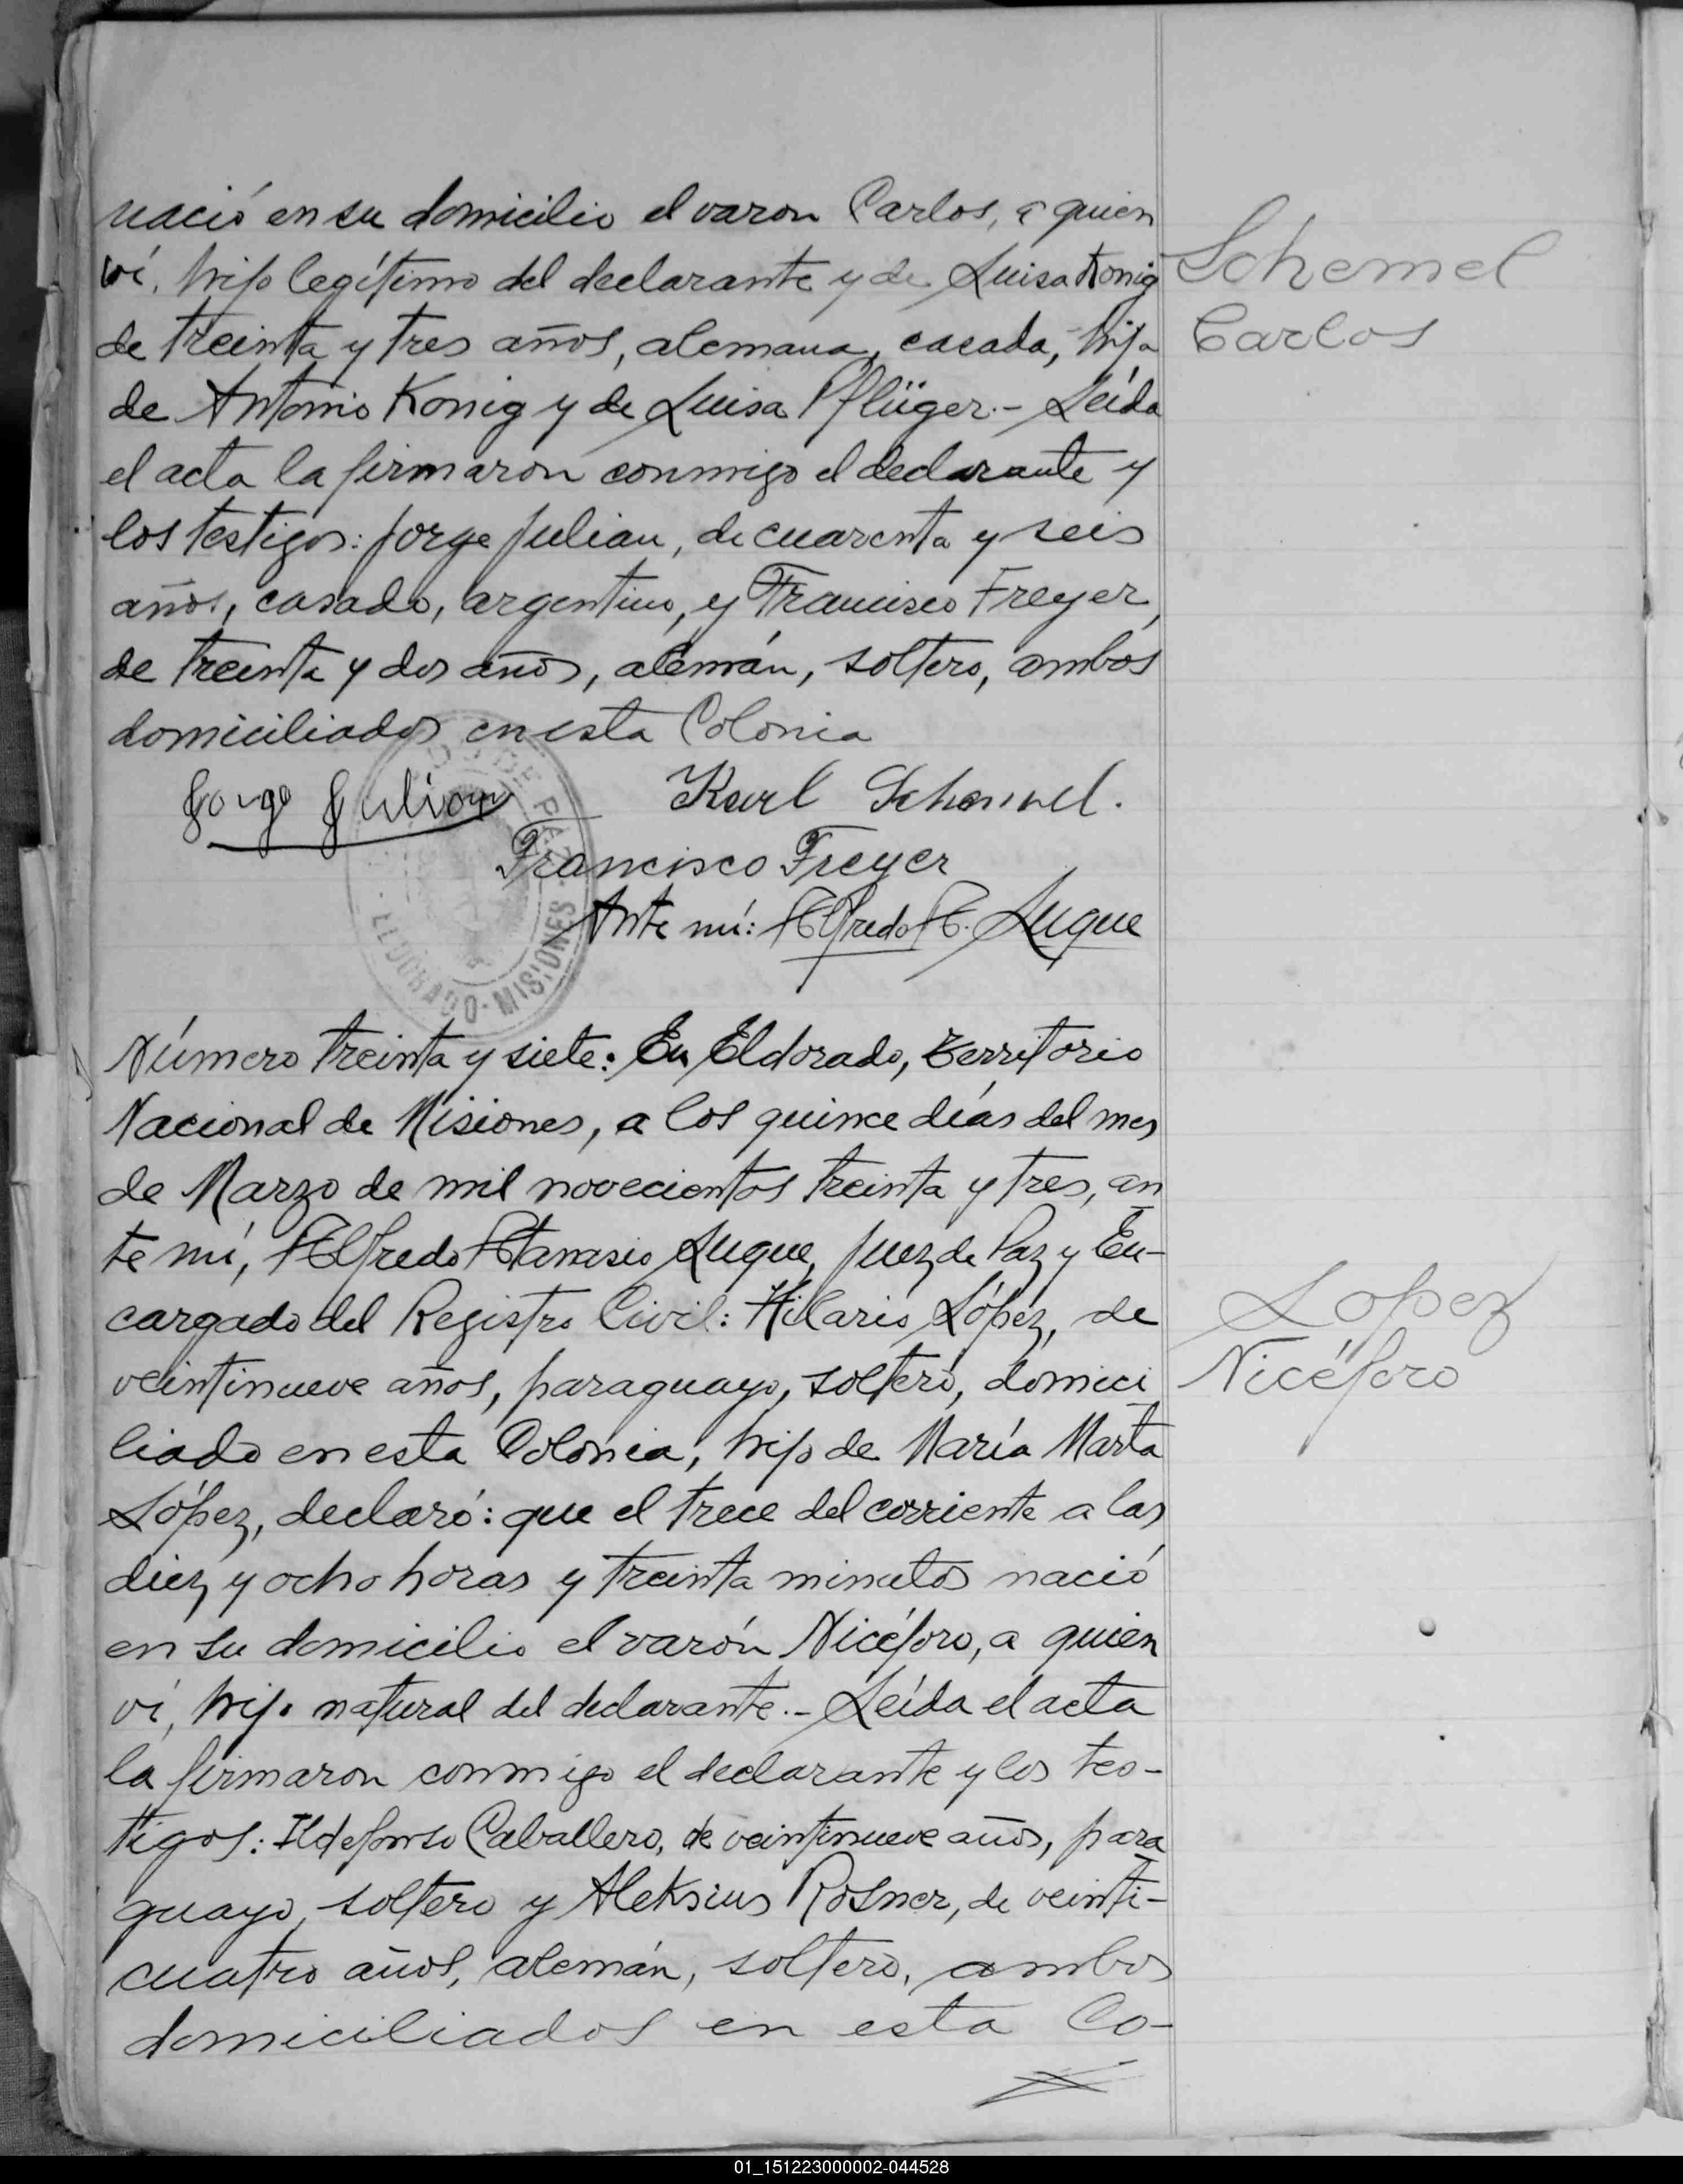 nació en su domicilio el varon Carlos, a quien
ví, hijo legítimo del declarante y de Luisa Konig
de treinta y tres años, alemana, casada, hija
de Antonio Konig y de Luisa Pflüger.- Leída
el acta la firmaron conmigo el declarante y
los testigos: Jorge Julian, de cuarenta y seis
años, casado, argentino, y Francisco Freyer,
de treinta y dos años, alemán, soltero, ambos
domiciliados en esta Colonia
Schemel
Carlos
Jorge Julian
Karl Schemmel.
Francisco Freyer
Ante mí: Alfredo A. Luque
DE PAZ
ELDORADO - MISIONES
Número treinta y siete: En Eldorado, Territorio
Nacional de Misiones, a los quince días del mes
de Marzo de mil novecientos treinta y tres, an
te mí, Alfredo Atanasio Luque, Juez de Paz y En-
cargado del Registro Civil: Hilario López, de
veintinueve años, paraguayo, soltero, domici
liado en esta Colonia, hijo de María Marta
López, declaró: que el trece del corriente a las
diez y ocho horas y treinta minutos nació
en su domicilio el varón Nicéforo, a quien
ví, hijo natural del declarante.- Leída el acta
la firmaron conmigo el declarante y los tes-
tigos: Ildefonso Caballero, de veintinueve años, para
guayo, soltero y Aleksius Rosner, de veinti-
cuatro años, alemán, soltero, ambos
domiciliados en esta Co-
Lopez
Nicéforo
01_151223000002-044528